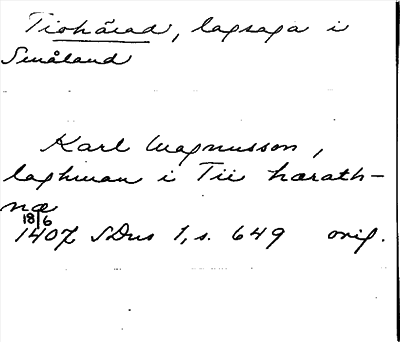 Tiohärad, lagsaga i
Småland
Karl Magnusson,
laghman i Tii hærath-
næ
18/6
1407 SDns 1, s. 649 orig.